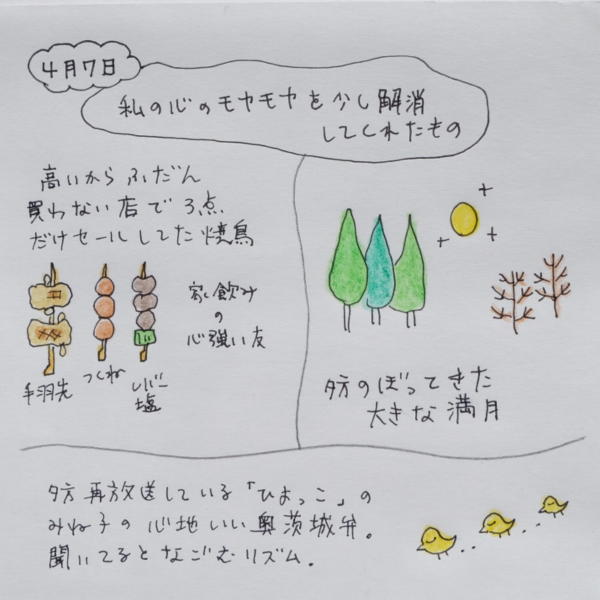 4月7日
私の心のモヤモヤを少し解消
してくれたもの
高いからふだん
買わない店で3点
だけセールしてた焼鳥
家飲み
の
心強い友
手羽先
つくね
レバー
塩
夕方のぼってきた
大きな満月
夕方再放送している「ひよっこ」の
みね子の心地いい奥茨城弁。
聞いてるとなごむリズム。